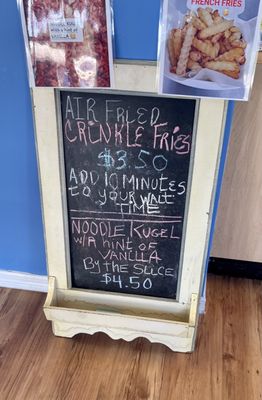 FRENCH FRIES
AIR FRIED
CRINKLE FRIES
$3.50
ADD 10 MINUTES
TO YOUR WAIT
TIME
NOODLE KUGEL
W/A hint of
VANILLA
By THE SLICE
$4.50